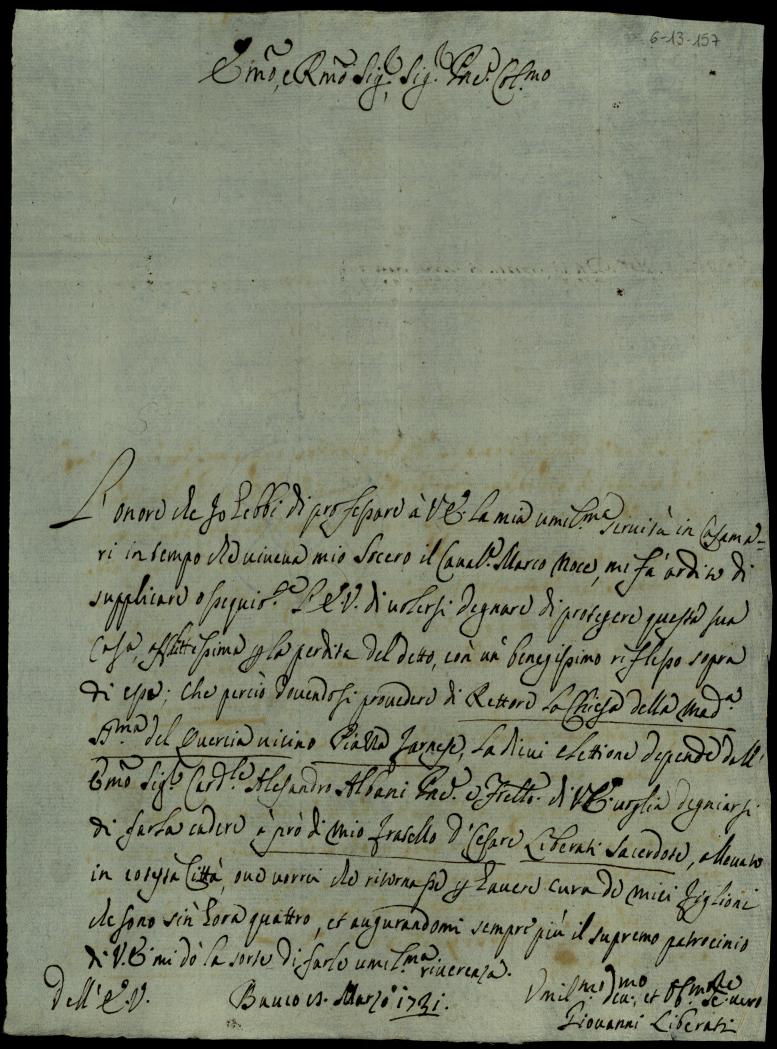 6-13-157
Emo, e Rmo Sig.r, Sig.r Pne. Col.mo
L'onore che Io hebbi di professare à V.E. la mia umil.ma servitù in Casama=
ri in tempo che viveva mio Socero il Caval.e Marco Noce, mi fà ardito di
supplicare ossequios.e l'E.V. di volersi degnare di protegere questa sua
Casa, afflittissima p la perdita del detto, con un' benegissimo riflesso sopra
di essa; che perciò dovendosi provedere di Rettore la Chiesa della Mad.a
SS.ma del Quercia vicino Piazza Farnese, la di cui elettione depende dall'
Emo Sig.r Card.le Alesandro Albani Pne. e Frello. di V.E. voglia degniarsi
di farla cadere à prò di mio fratello D. Cesare Liberati Sacerdote, allevato
in cotesta Città, ove vorrei che ritornasse p havere cura de miei figlioli
che sono sin' hora quattro, et augurandomi sempre più il supremo patrocinio
di V.E. mi dò la sorte di farle umil.ma riverenza.
Dell' E.V. Bauco Marzo 1721.
Umil.mo Dev.mo, et Obl.mo Se.re vero
Giovanni Liberati